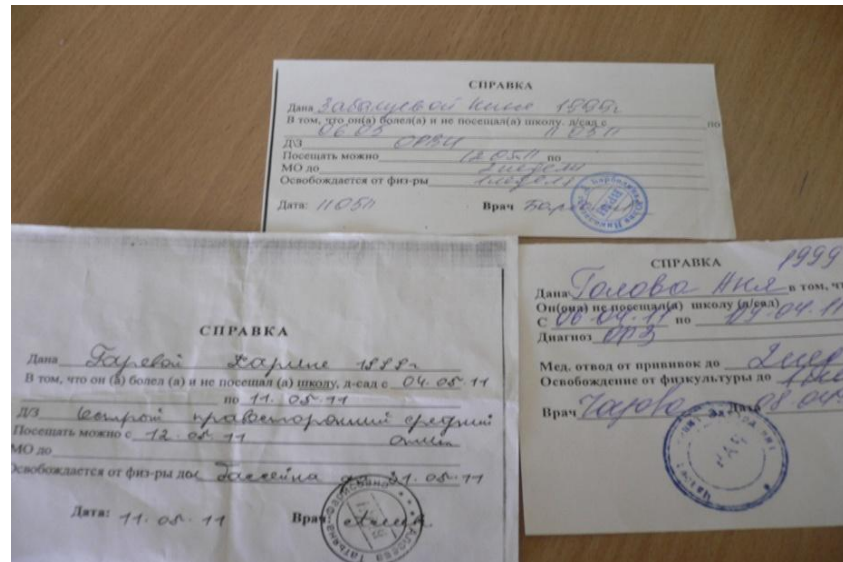 СПРАВКА
Дана Забалуевой 1999г
В том, что он(а) болел(а) и не посещал(а) школу, д/сад с по
06.05 11 05 11
Д\З ОРВИ
Посещать можно 12 05 11 по
МО до 2 недели
Освобождается от физ-ры 1 неделя
Дата: 11 05 11 Врач
СПРАВКА
Дана Гаревой Карине 1999г
В том, что он (а) болел (а) и не посещал (а) школу, д-сад с 04. 05. 11
по 11. 05. 11
Д/З Острый правосторонний средний
отит
Посещать можно с 12. 05. 11
МО до
Освобождается от физ-ры до и бассейна до 31. 05. 11
Дата: 11. 05. 11 Врач
СПРАВКА 1999
Дана Голова Аня в том, чт
Он(она) не посещал(а) школу (д/сад)
С 06. 04. 11 по 09. 04. 11
Диагноз ОРЗ
Мед. отвод от прививок до 2 нед
Освобождение от физкультуры до 1
Врач Дата 08 04